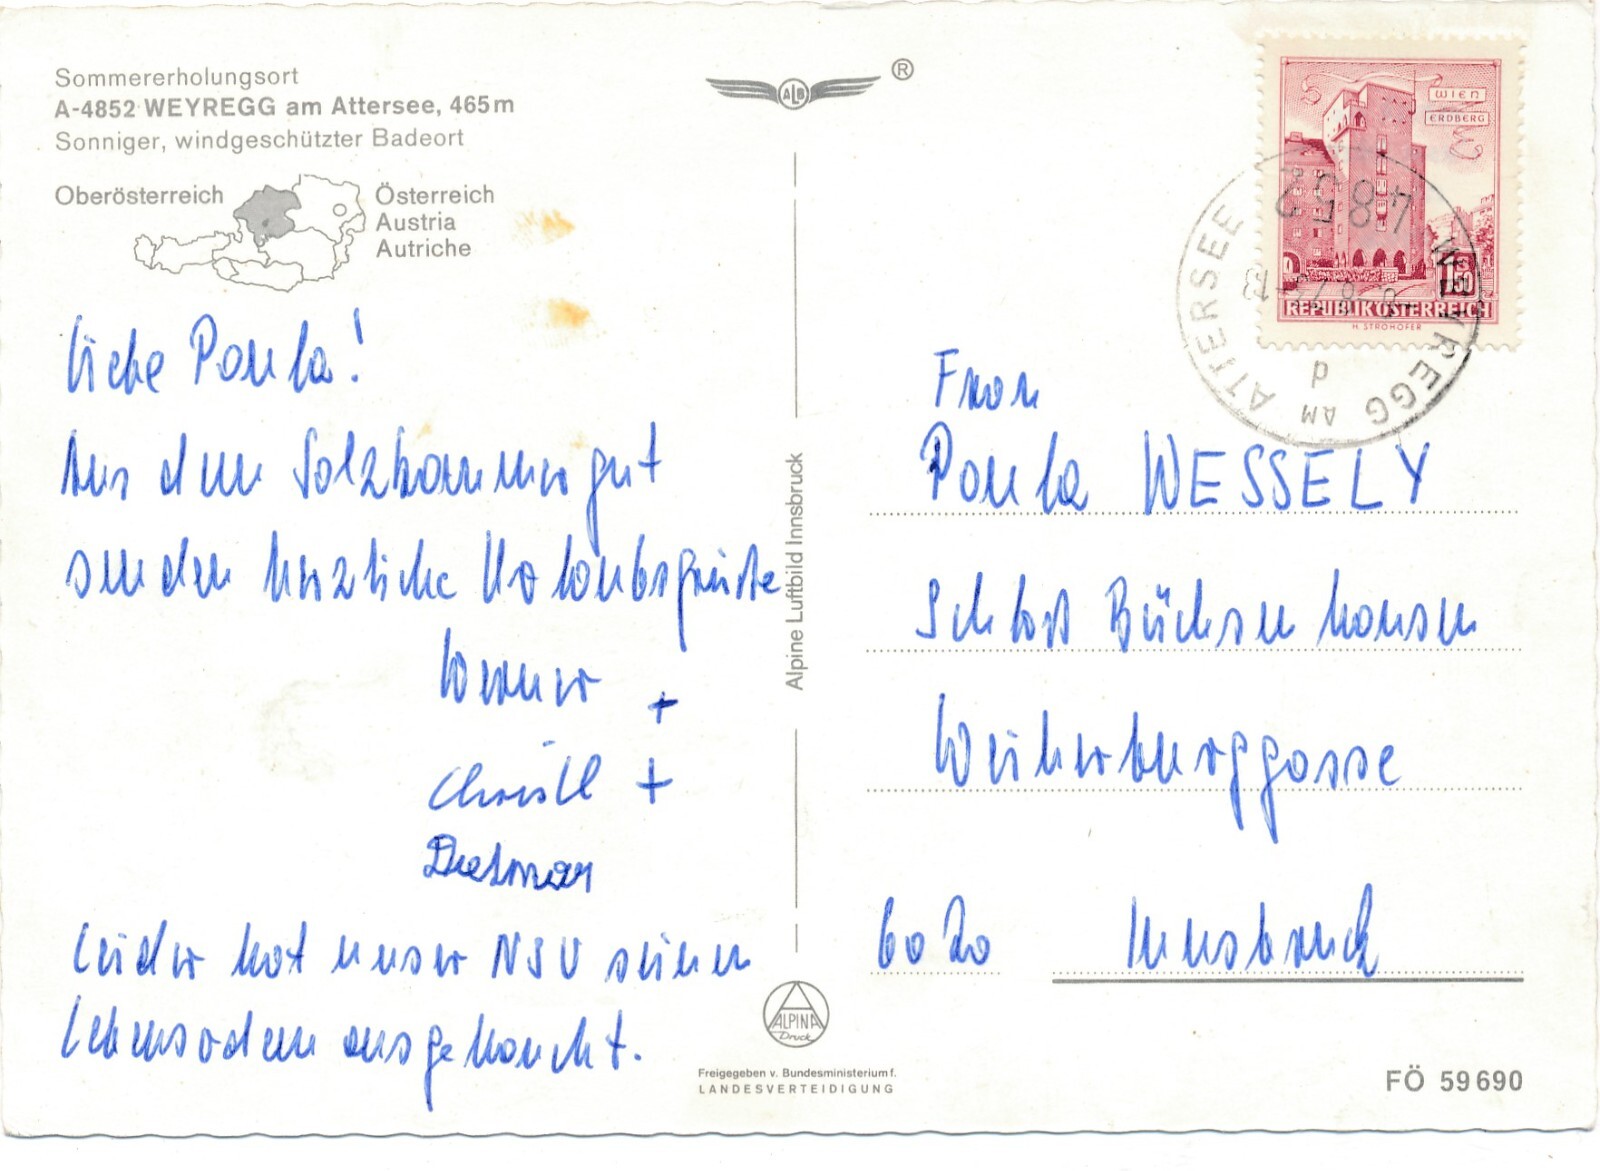 Sommererholungsort
A-4852 WEYREGG am Attersee, 465m
Sonniger, windgeschützter Badeort
Oberösterreich
Österreich
Austria
Autriche
Liebe Paula!
Aus dem Salzkammergut
senden herzliche Urlaubsgrüße
Werner +
Christl +
Dietmar
Leider hat unser NSU seinen
Lebensodem ausgehaucht.
ALB ®
Alpine Luftbild Innsbruck
ALPINA
Druck
Freigegeben v. Bundesministerium f.
LANDESVERTEIDIGUNG
WIEN
ERDBERG
1.50
REPUBLIK ÖSTERREICH
H. STROHOFER
4852 WEYREGG AM ATTERSEE
Frau
Paula WESSELY
Schloß Büchsenhausen
Weiherburggasse
6020 Innsbruck
FÖ 59690